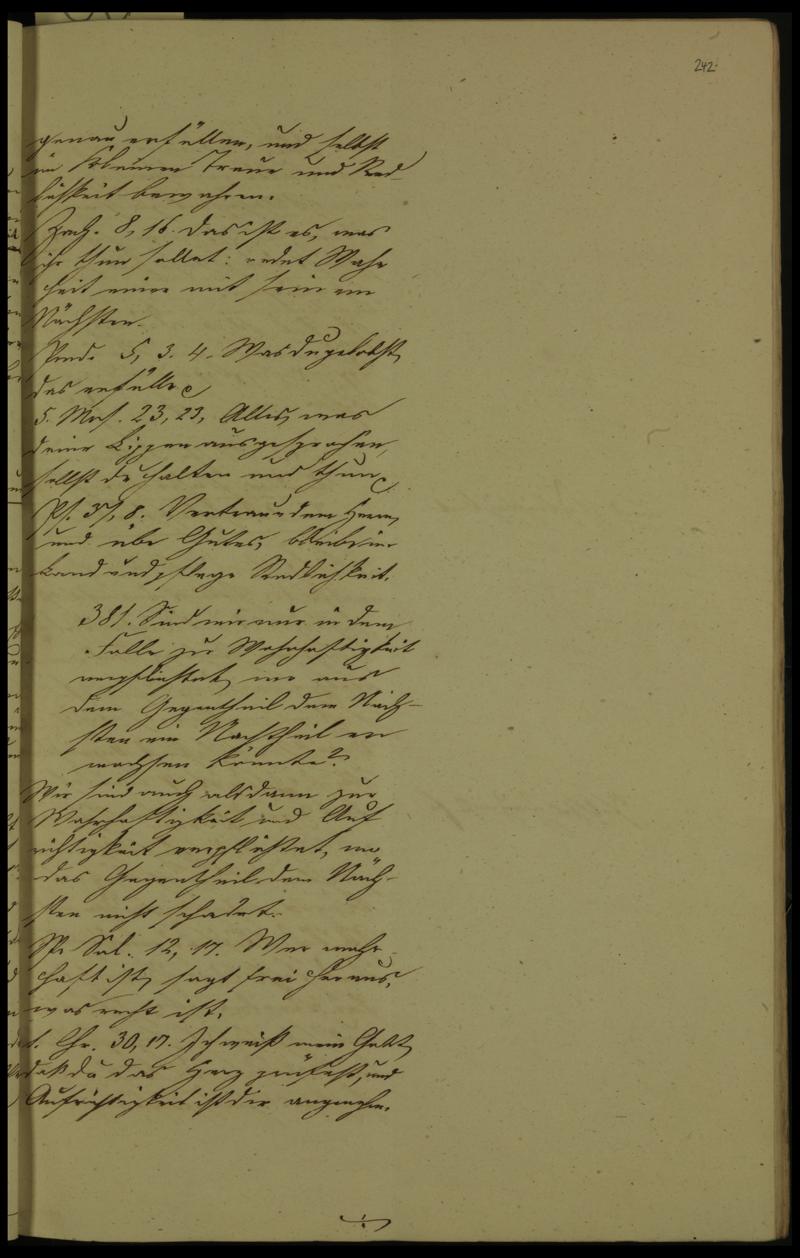 242.
genau erfüllen, und selbst
im Kleinen Treue und Red-
lichkeit bewahren.
Zach. 8, 16. Das ist es, was
ihr thun sollet: redet Wahr
heit einer mit seinem
Nächsten.
Pred. 5, 3. 4. Was du gelobst,
das erfülle
5. Mos. 23, 23, Alles, was
deine Lippen ausgesprochen,
sollst du halten und thun
Ps. 37, 8. Vertraue dem Herrn,
und übe Gutes, bleibe im
Land und pflege Redlichkeit.
381. Sind wir nur in dem
Falle zur Wahrhaftigkeit
verpflichtet, wo aus
dem Gegentheil dem Näch-
sten ein Nachtheil er
wachsen könnte?
Wir sind auch alsdann zur
Wahrhaftigkeit und Auf
richtigkeit verpflichtet, wo
das Gegentheil dem Näch-
sten nicht schadet.
Sp. Sal. 12, 17. Wer wahr
haft ist, sagt frei heraus,
was recht ist.
1. Chr. 30, 17. Ich weiß mein Gott,
daß du das Herz prüfest, und
Aufrichtigkeit ist dir angenehm.